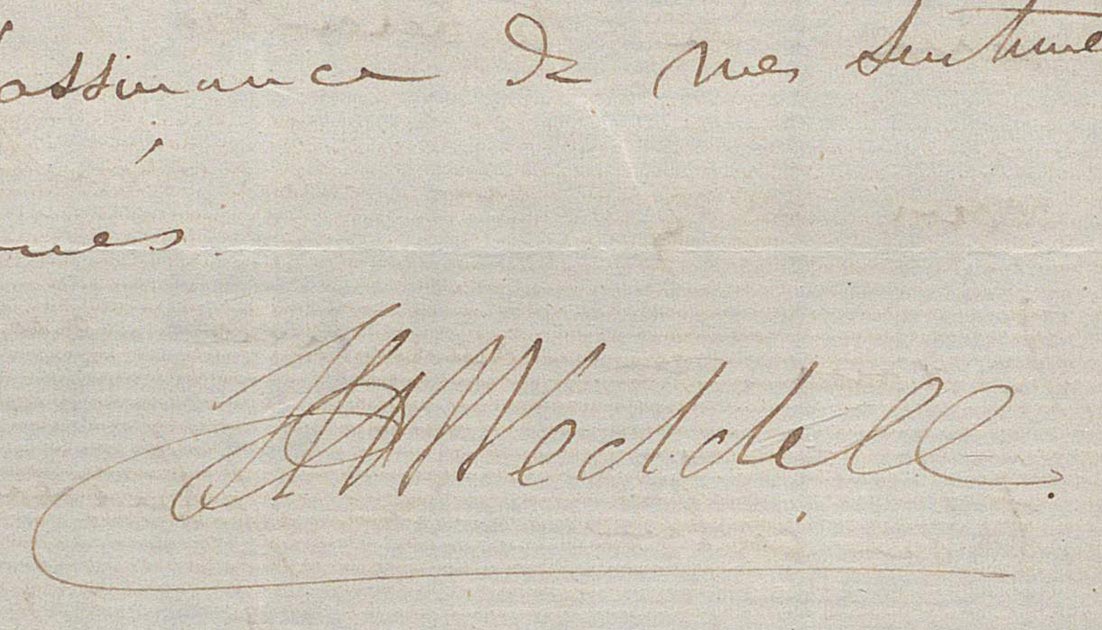 assurance de mes sentime
ués.
HAWeddell.